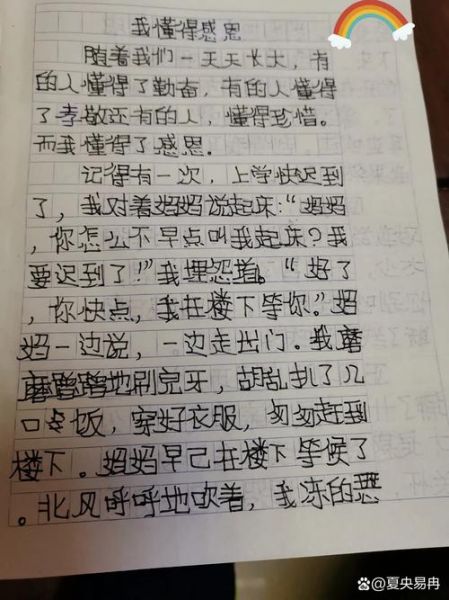 我懂得感恩
随着我们一天天长大，有
的人懂得了勤奋，有的人懂得
了孝敬还有的人，懂得珍惜。
而我懂得了感恩。
记得有一次，上学快迟到
了，我对着妈妈说起床：“妈妈
，你怎么不早点叫我起床？我
要迟到了！”我埋怨道。“好了
，你快点，我在楼下等你。”妈
妈一边说，一边走出门。我磨
磨蹭蹭地刷完牙，胡乱扒了几
口饭，穿好衣服，匆匆赶到
楼下。妈妈早已在楼下等候了
。北风呼呼地吹着，我冻的
@夏央易冉